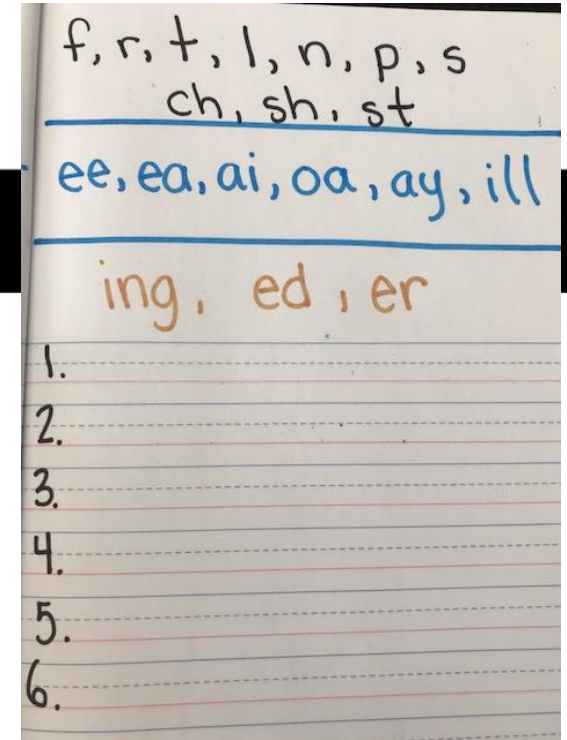 f, r, t, l, n, p, s
ch, sh, st
ee, ea, ai, oa, ay, ill
ing, ed, er
1.
2.
3.
4.
5.
6.